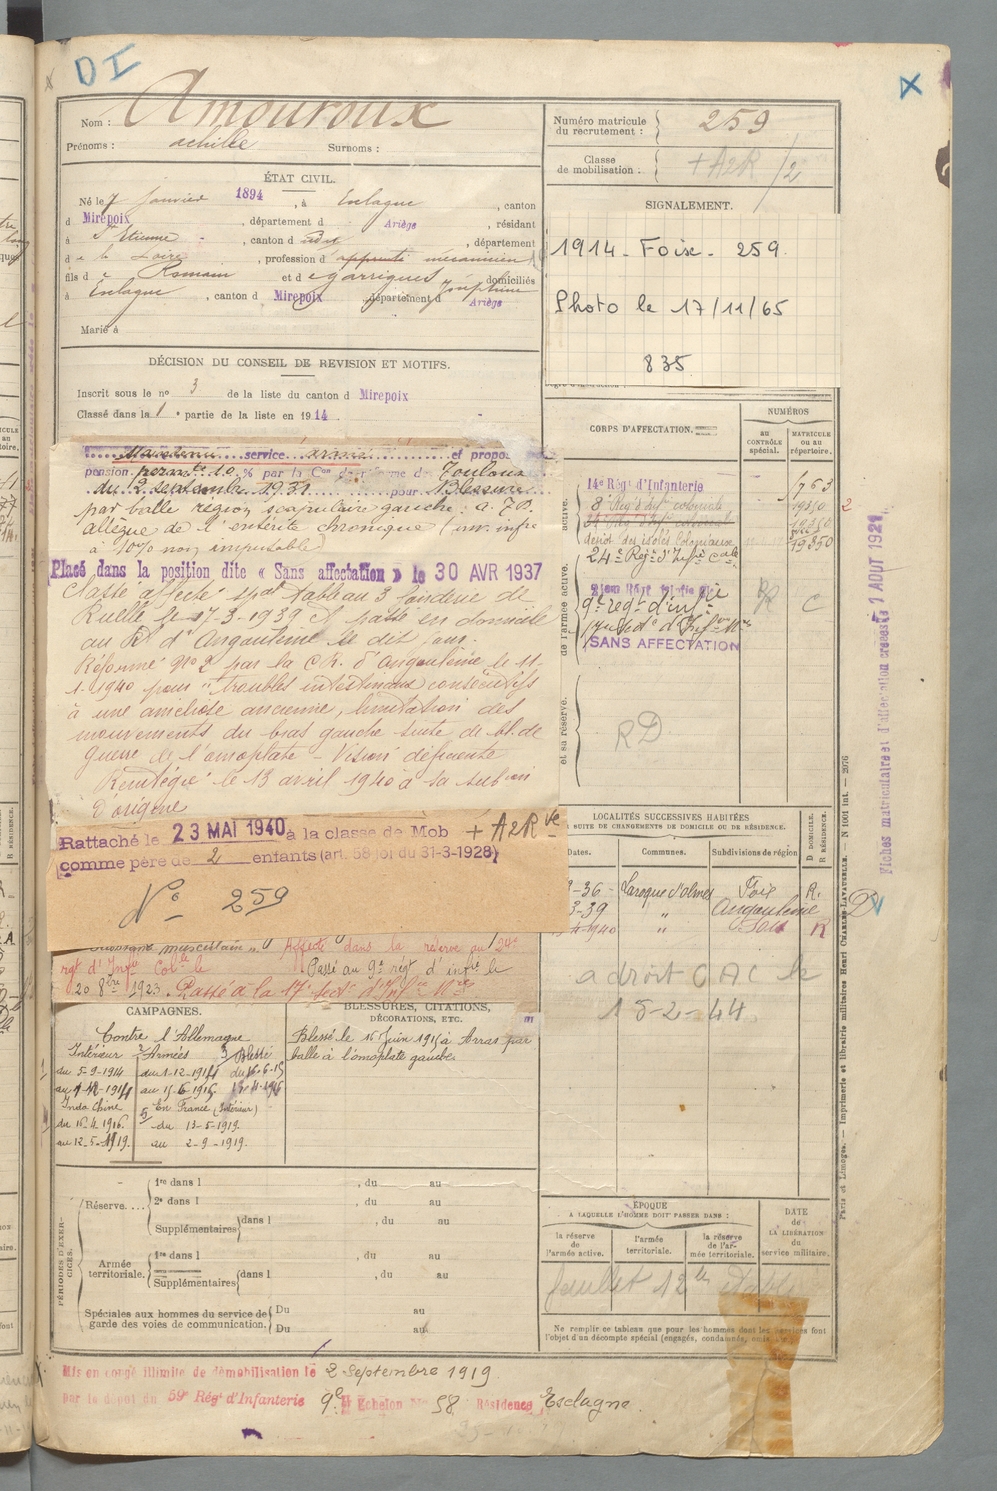 DI
X
Nom : Amouroux
Prénoms : achille Surnoms :
Numéro matricule du recrutement : 259
Classe de mobilisation : + A2R /2
ÉTAT CIVIL.
Né le 7 Janvier 1894, à Esclagne, canton
d Mirepoix, département d Ariège, résidant
à St Etienne, canton d udt, département
d e la Loire, profession d apprenti mécanicien
fils d e Romain et d e Garrigues Joséphine domiciliés
à Esclagne, canton d Mirepoix, département d Ariège
Marié à
SIGNALEMENT.
1914 - Foix - 259.
Photo le 17/11/65
835
DÉCISION DU CONSEIL DE REVISION ET MOTIFS.
Inscrit sous le no 3 de la liste du canton d Mirepoix
Classé dans la 1e partie de la liste en 1914
Maintenu service armé et propos
pension permte 10 % par la Con de réforme de Toulouse
du 2 septembre 1931 pour Blessure
par balle région scapulaire gauche : a. 7B.
Allègue de l'entérite chronique (inv. infre
à 10% non imputable)
Placé dans la position dite « Sans affectation » le 30 AVR 1937
Classé affecté spal tableau 3 fonderie de
Ruelle le 17-3-1939 et passé en domicile
au Rt d'Angoulême le dit jour.
Réformé no 2 par la C.R. d'Angoulême le 11-
1-1940 pour "troubles intestinaux consécutifs
à une ambiose ancienne, limitation des
mouvements du bras gauche suite de bl. de
guerre de l'omoplate - Vision déficiente
Réintégré le 13 avril 1940 à sa subon
d'origine
Rattaché le 23 MAI 1940 à la classe de Mob + A2R
comme père de 2 enfants (art. 58 loi du 31-3-1928)
No 259
musculaire". Affecté dans la réserve au 24e
rgt d'Infie Colle le Passé au 9e régt d'infie le
20 8bre 1923. Passé à la 17e Sect. d'Infers Mres
CORPS D'AFFECTATION.
NUMÉROS
AU CONTRÔLE SPÉCIAL.
MATRICULE OU AU RÉPERTOIRE.
de l'armée active.
14e Régt d'Infanterie 1763
8e Régt d'Inf coloniale 19350
24 Rég d'Inf coloniale 19350
dépôt des isolés Coloniaux 19350
24e Régt d'Infie Cale
9e regt d'infie C
17e Sect. d'Infers Mres
SANS AFFECTATION
et sa réserve.
RD
LOCALITÉS SUCCESSIVES HABITÉES
SUITE DE CHANGEMENTS DE DOMICILE OU DE RÉSIDENCE.
Dates. Communes. Subdivisions de région. D DOMICILE. R RÉSIDENCE.
-36 - Laroque d'olmes Foix R.
3-39 " Angoulême
4-1940 " Foix R
a droit C A C le
15-2-44.
CAMPAGNES.
Contre l'Allemagne
Intérieur Armées Blessé
du 5-9-1914 du 1-12-1914 du 16-6-15
au 1-12-1914 au 15-6-1915
Indo Chine En France (Intérieur)
du 16-4-1916. du 13-5-1919.
au 12-5-1919. au 2-9-1919.
BLESSURES, CITATIONS, DÉCORATIONS, ETC.
Blessé le 16 Juin 1915 à Arras par
balle à l'omoplate gauche.
PÉRIODES D'EXERCICES.
Réserve....
1re dans l , du au
2e dans l , du au
Supplémentaires dans l , du au
Armée territoriale.
1re dans l , du au
Supplémentaires dans l , du au
Spéciales aux hommes du service de garde des voies de communication.
Du au
Du au
ÉPOQUE
A LAQUELLE L'HOMME DOIT PASSER DANS :
la réserve de l'armée active.
l'armée territoriale.
la réserve de l'armée territoriale.
DATE de LA LIBÉRATION du service militaire.
Ne remplir ce tableau que pour les hommes dont les services font
l'objet d'un décompte spécial (engagés, condamnés,
Mis en congé illimité de démobilisation le 2 Septembre 1919
par le dépôt du 59e Régt d'Infanterie 9e Echelon No 58 Résidence Esclagne.
Paris et Limoges. — Imprimerie et librairie militaires Henri CHARLES-LAVAUZELLE. — N 1001 int. — 2076
Fiches matriculaire et d'affectation créées le 1 AOUT 1921